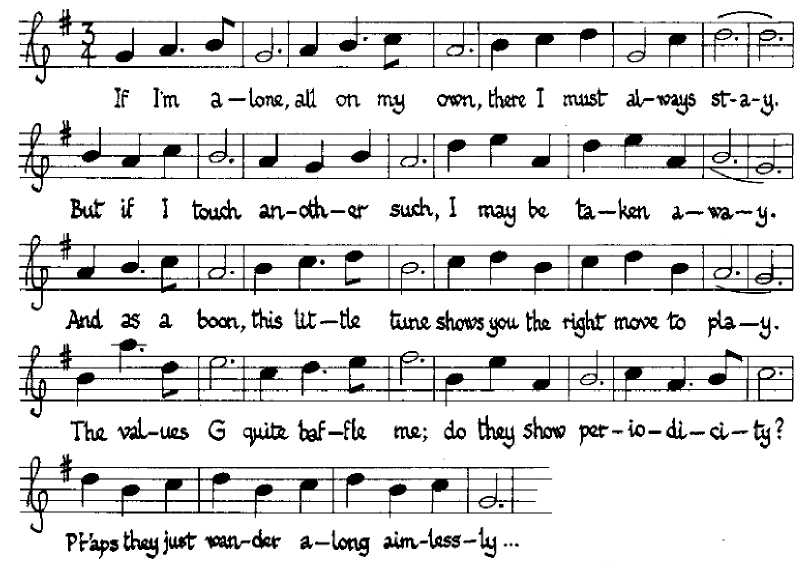 3
4
If I'm a–lone, all on my own, there I must al–ways st–a–y.
But if I touch an–oth–er such, I may be ta–ken a–wa–y.
And as a boon, this lit–tle tune shows you the right move to pla–y.
The val–ues G quite baf–fle me; do they show per–io–di–ci–ty?
P'r'aps they just wan–der a–long aim–less–ly ...